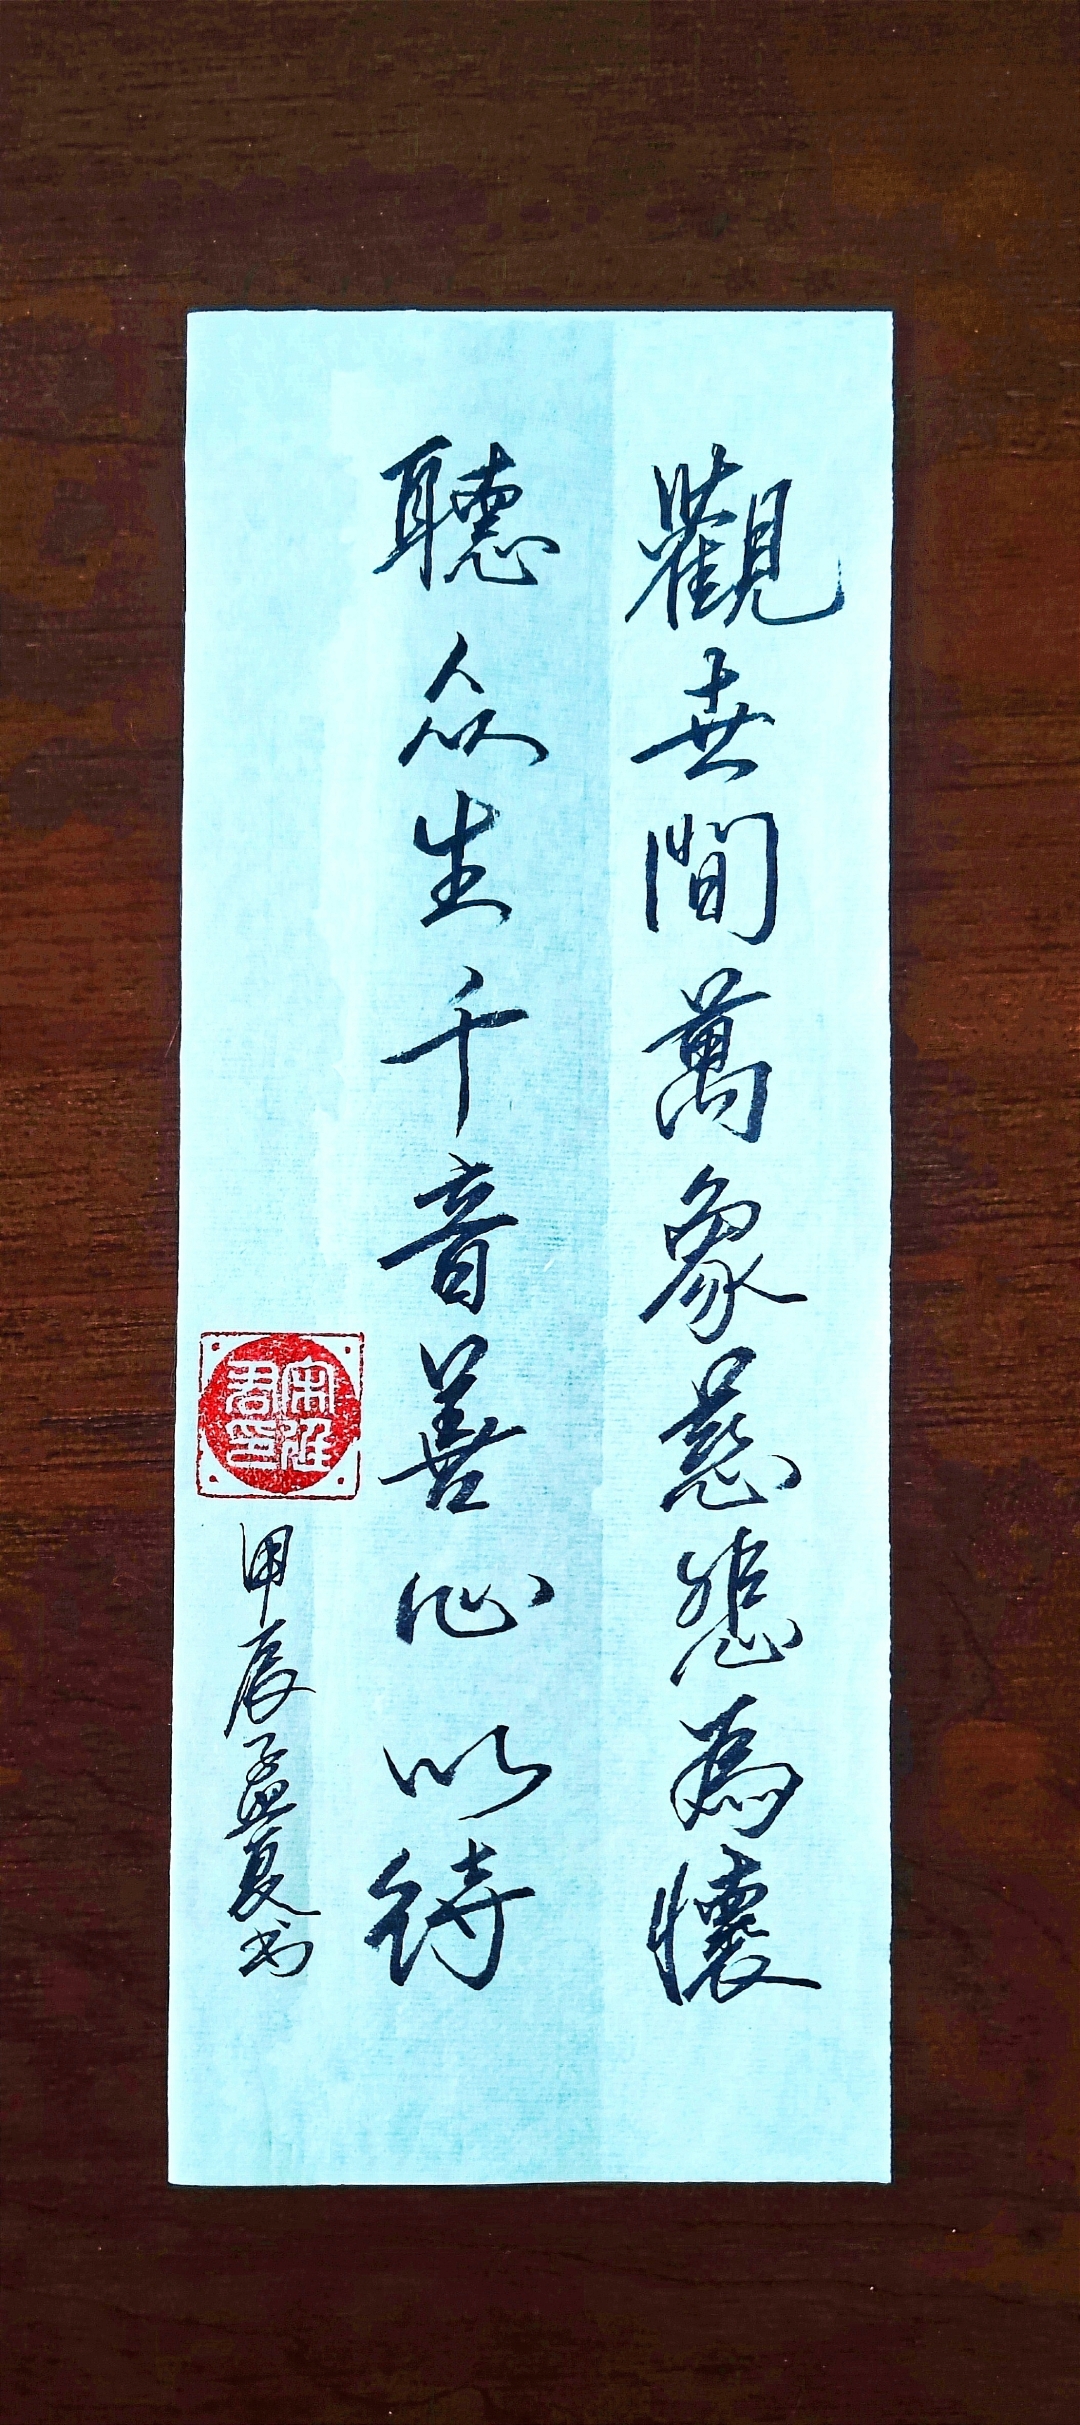 觀世間萬象慈悲為懷
聽众生千音善心以待
甲辰孟夏书